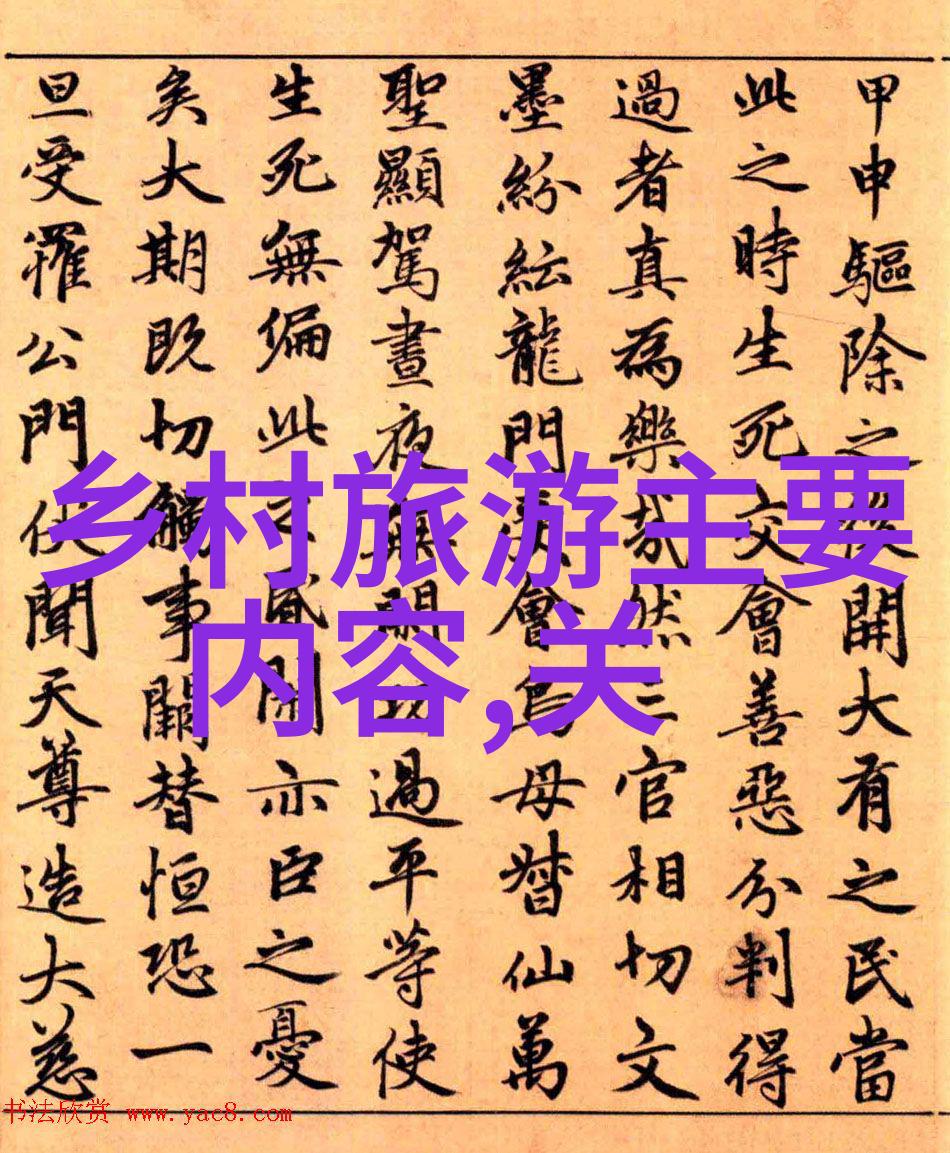 甲申驅除之後開大有之民當
此之時生死交會善惡分判得
過者真為樂哉然三官相切文
墨紛紜龍門會母督仙萬
聖顯駕晝夜無過平等使
生死無偏此亦臣之憂
矣大期既切觸事闕替恒恐一
旦受罹公門伏聞天尊造大慈
乡村旅游主要
内容,关
书法欣赏 www.yac8.com